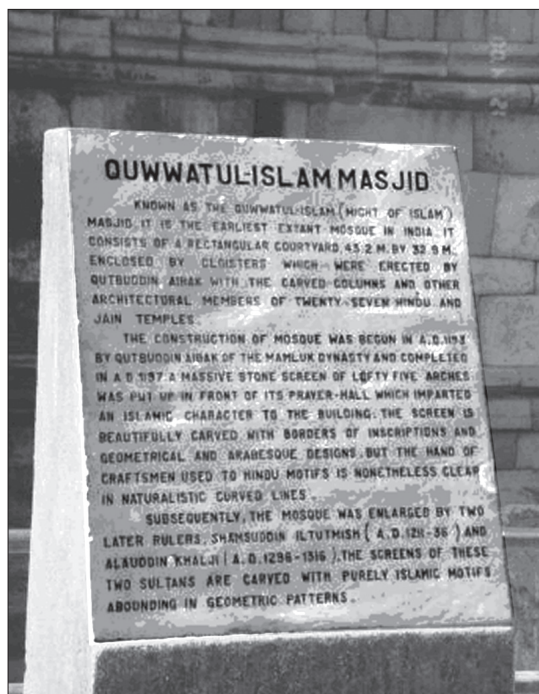 QUWWATUL-ISLAM MASJID
KNOWN AS THE QUWWATUL-ISLAM (MIGHT OF ISLAM)
MASJID IT IS THE EARLIEST EXTANT MOSQUE IN INDIA. IT
CONSISTS OF A RECTANGULAR COURTYARD, 43.2 M. BY 32.9 M.
ENCLOSED BY CLOISTERS WHICH WERE ERECTED BY
QUTBUDDIN AIBAK WITH THE CARVED COLUMNS AND OTHER
ARCHITECTURAL MEMBERS OF TWENTY-SEVEN HINDU AND
JAIN TEMPLES.
THE CONSTRUCTION OF MOSQUE WAS BEGUN IN A.D.1193
BY QUTBUDDIN AIBAK OF THE MAMLUK DYNASTY AND COMPLETED
IN A.D.1197. A MASSIVE STONE SCREEN OF LOFTY FIVE ARCHES
WAS PUT UP IN FRONT OF ITS PRAYER-HALL WHICH IMPARTED
AN ISLAMIC CHARACTER TO THE BUILDING. THE SCREEN IS
BEAUTIFULLY CARVED WITH BORDERS OF INSCRIPTIONS AND
GEOMETRICAL AND ARABESQUE DESIGNS, BUT THE HAND OF
CRAFTSMEN USED TO HINDU MOTIFS IS NONETHELESS CLEAR
IN NATURALISTIC CURVED LINES.
SUBSEQUENTLY, THE MOSQUE WAS ENLARGED BY TWO
LATER RULERS, SHAMSUDDIN ILTUTMISH (A.D.1211-36) AND
ALAUDDIN KHALJI (A.D.1296-1316). THE SCREENS OF THESE
TWO SULTANS ARE CARVED WITH PURELY ISLAMIC MOTIFS
ABOUNDING IN GEOMETRIC PATTERNS.